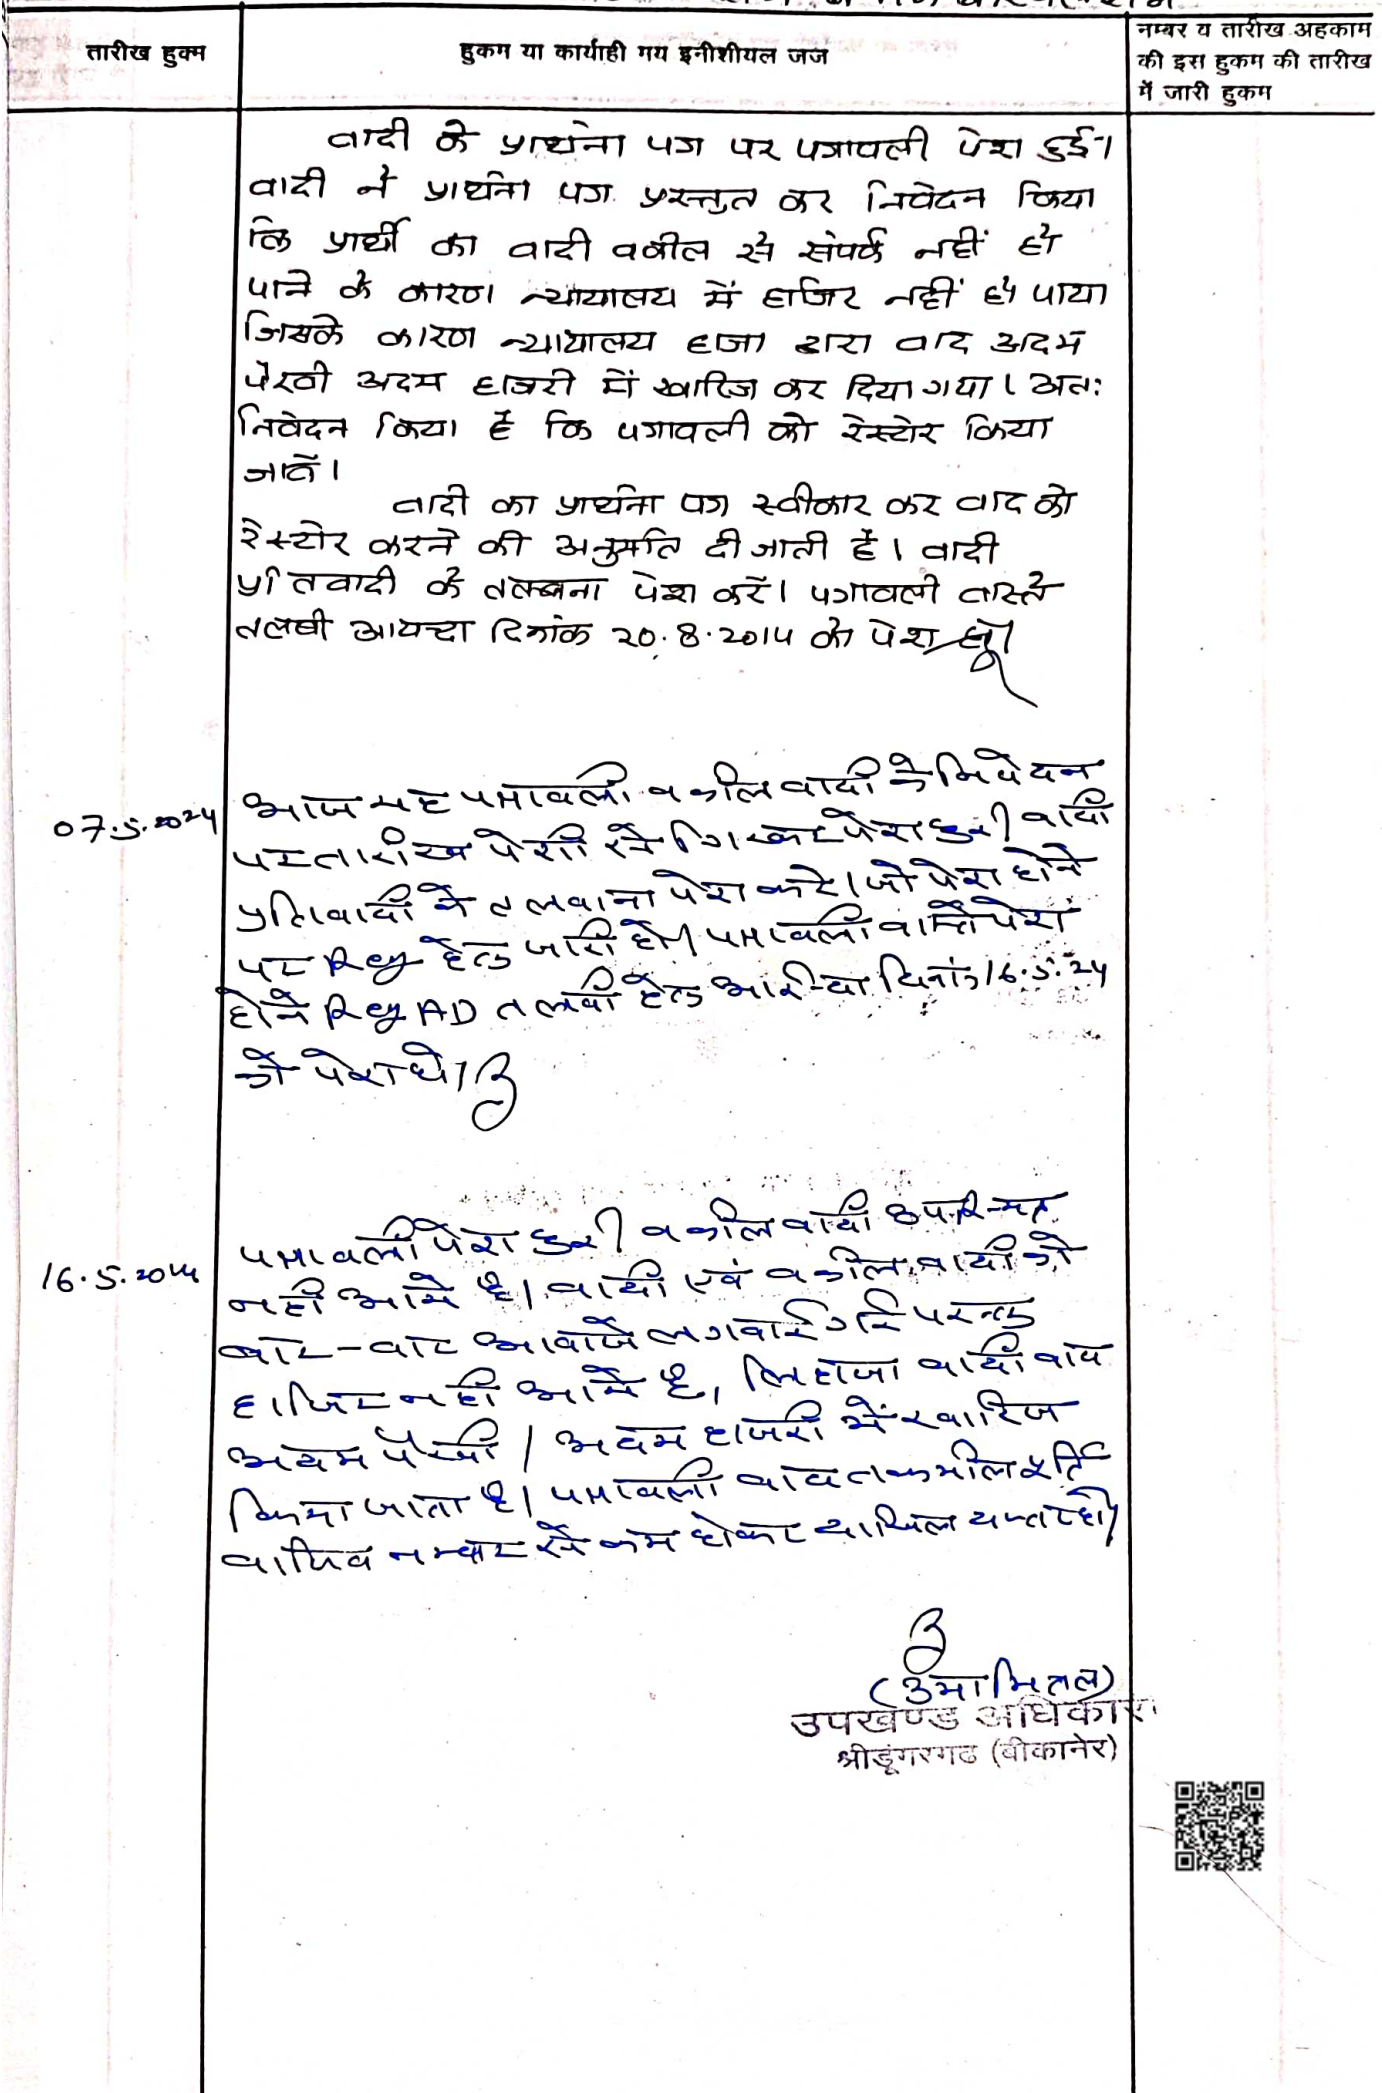 तारीख हुक्म
हुकम या कार्याही मय इनीशीयल जज
नम्बर व तारीख अहकाम
की इस हुकम की तारीख
में जारी हुकम
वादी के प्रार्थना पत्र पर पत्रावली पेश हुई।
वादी ने प्रार्थना पत्र प्रस्तुत कर निवेदन किया
कि प्रार्थी का वादी वकील से संपर्क नहीं हो
पाने के कारण न्यायालय में हाजिर नहीं हो पाया
जिसके कारण न्यायालय हाजा द्वारा वाद अदम
पैरवी अदम हाजरी में खारिज कर दिया गया। अतः
निवेदन किया है कि पत्रावली को रेस्टोर किया
जावें।
वादी का प्रार्थना पत्र स्वीकार कर वाद को
रेस्टोर करने की अनुमति दी जाती हैं। वादी
प्रतिवादी के तलबाना पेश करें। पत्रावली वास्ते
तलबी आयन्दा दिनांक 20.8.2014 को पेश हो
07.5.2024
आज यह पत्रावली वकील वादी के निवेदन
पर तारीख पेशी से निकलकर पेश हुई। वादी
प्रतिवादी के तलवाना पेश करे। जो पेश होने
पर Reg हेतु जारी हो। पत्रावली वास्ते पेश
होने Reg AD तलबी हेतु आईन्दा दिनांक 16.5.24
को पेश हो।
16.5.2024
पत्रावली पेश हुई। वकील वादी उपस्थित
नही आये है। वादी एवं वकील वादी को
बार-बार आवाजे लगवाई गई परन्तु
हाजिर नही आये है, लिहाजा वादी वाद
अदम पैरवी / अदम हाजरी में खारिज
किया जाता है। पत्रावली बाद तकमील पूर्ति
वाजिब नम्बर से कम होकर दाखिल दफ्तर हो।
(उमा मित्तल)
उपखण्ड अधिकारी
श्रीडूंगरगढ (बीकानेर)